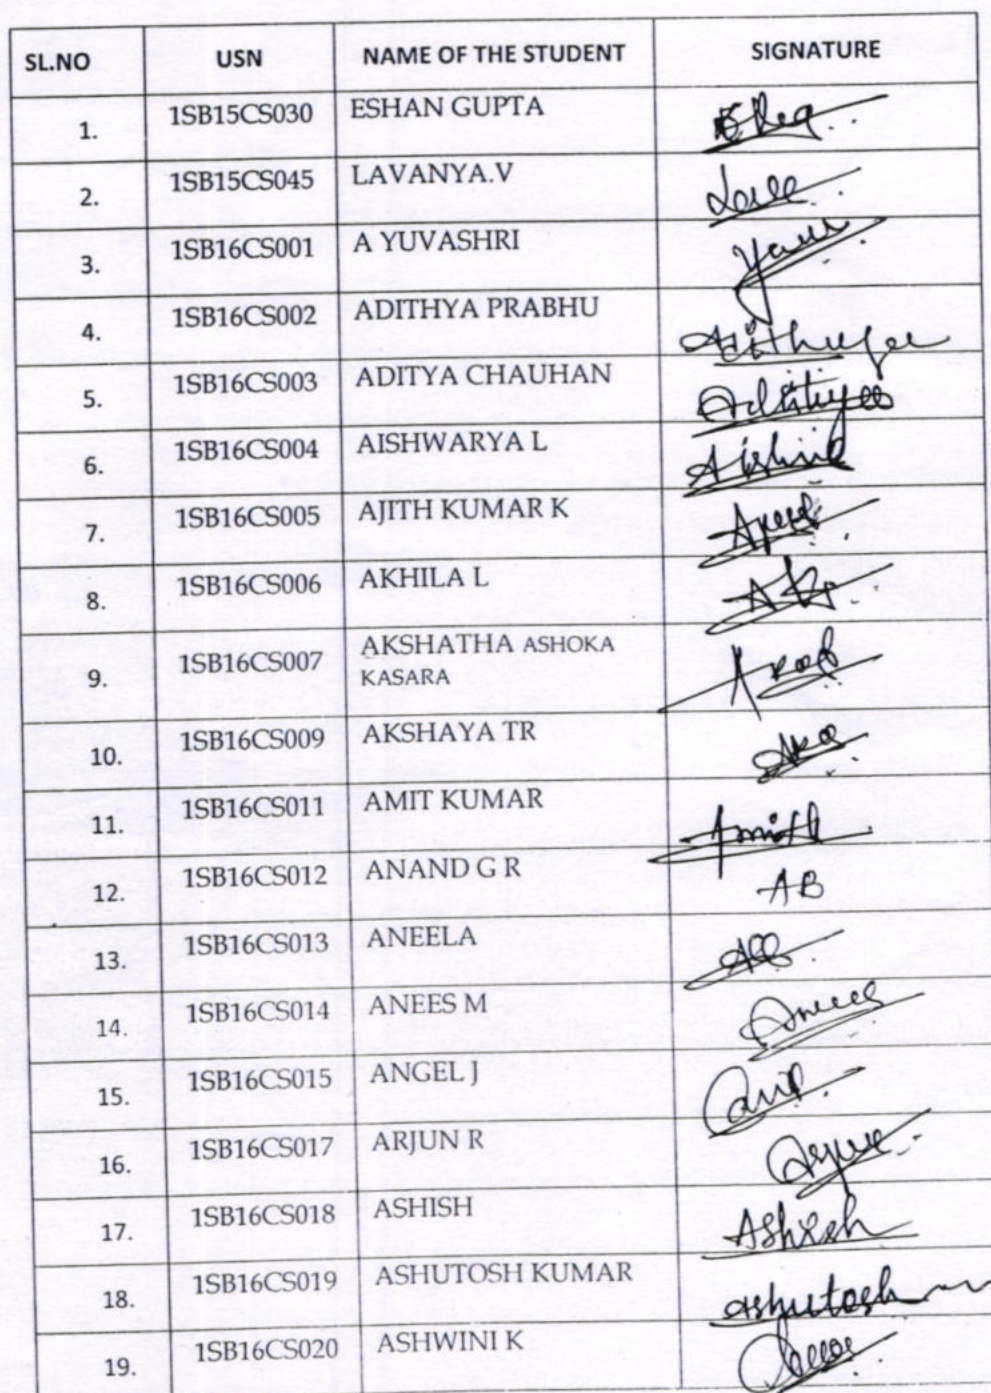 SL.NO USN NAME OF THE STUDENT SIGNATURE
1. 1SB15CS030 ESHAN GUPTA
2. 1SB15CS045 LAVANYA.V
3. 1SB16CS001 A YUVASHRI
4. 1SB16CS002 ADITHYA PRABHU
5. 1SB16CS003 ADITYA CHAUHAN
6. 1SB16CS004 AISHWARYA L
7. 1SB16CS005 AJITH KUMAR K
8. 1SB16CS006 AKHILA L
9. 1SB16CS007 AKSHATHA ASHOKA
KASARA
10. 1SB16CS009 AKSHAYA TR
11. 1SB16CS011 AMIT KUMAR
12. 1SB16CS012 ANAND G R AB
13. 1SB16CS013 ANEELA
14. 1SB16CS014 ANEES M
15. 1SB16CS015 ANGEL J
16. 1SB16CS017 ARJUN R
17. 1SB16CS018 ASHISH Ashish
18. 1SB16CS019 ASHUTOSH KUMAR ashutosh
19. 1SB16CS020 ASHWINI K